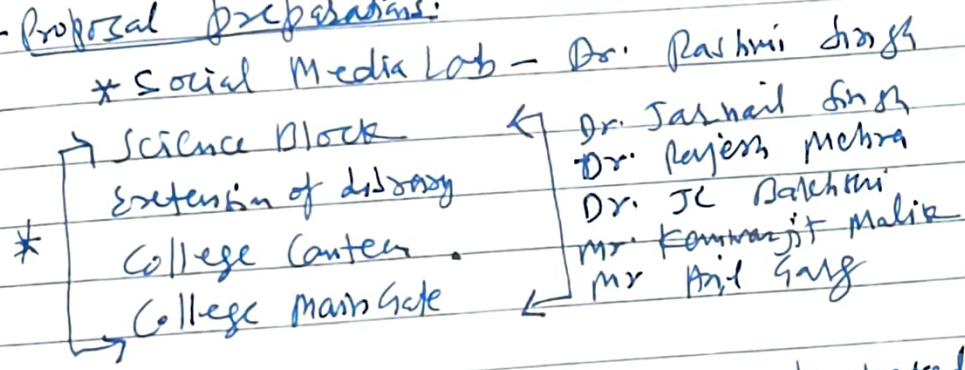 - Proposal preparations:
* Social Media Lab - Dr. Rashmi Singh
Science Block
Extension of Library
* College Canteen.
College Main Gate
Dr. Jasnail Singh
Dr. Rajesh Mehra
Dr. JC
Mr. Malik
Mr Anil Garg